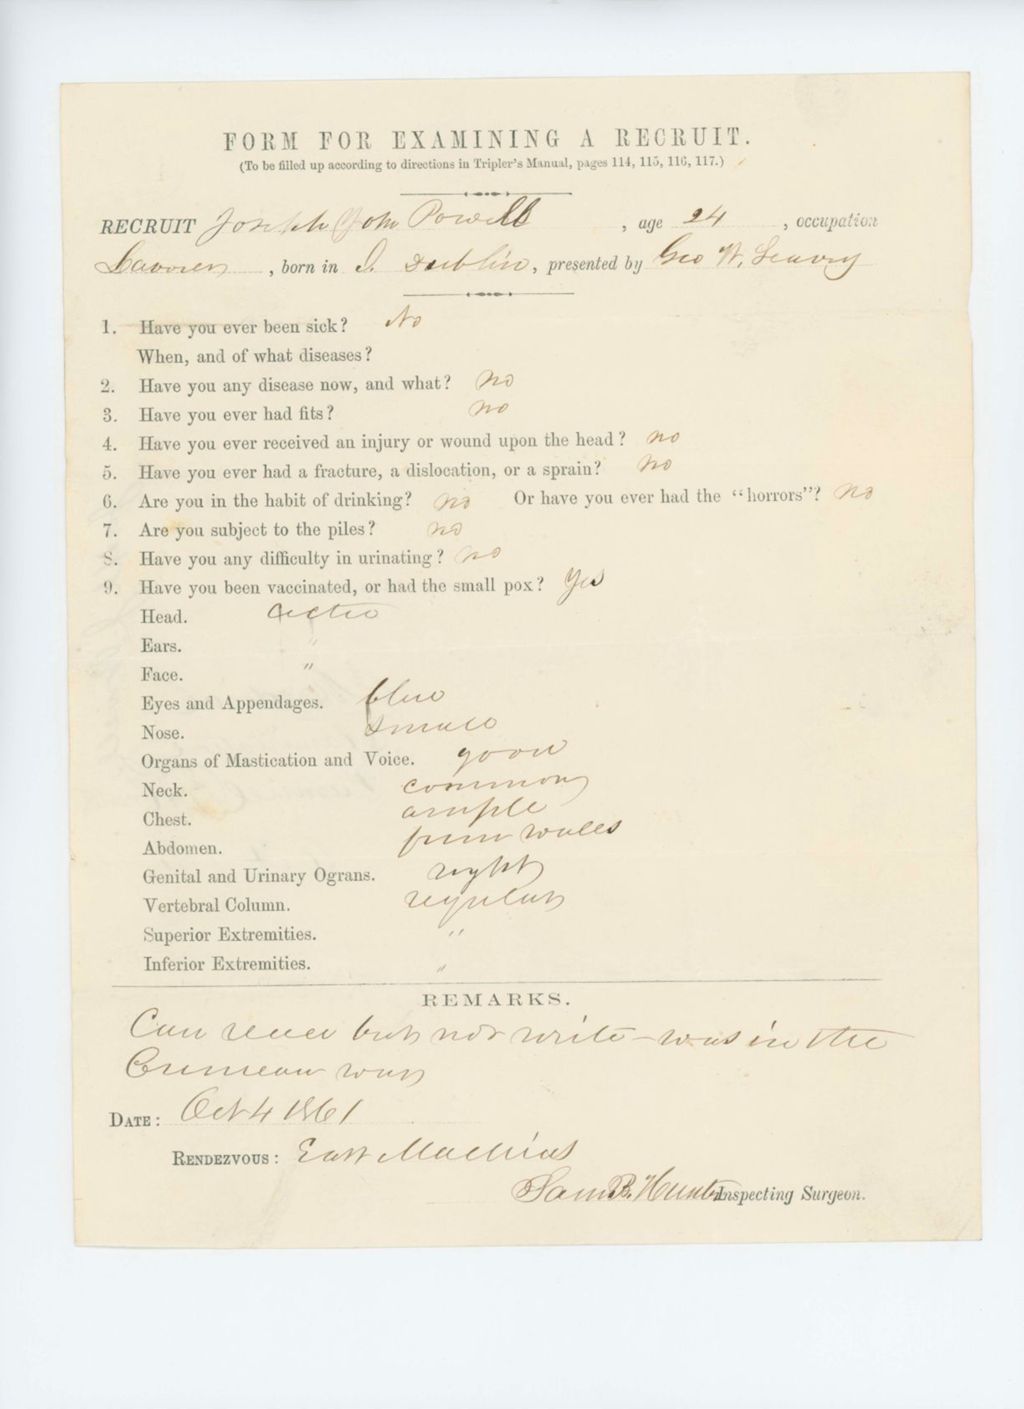 FORM FOR EXAMINING A RECRUIT.
(To be filled up according to directions in Tripler's Manual, pages 114, 115, 116, 117.)
RECRUIT Joseph John Powell , age 24 , occupation
, born in I. Dublin, presented by Geo W.
1. Have you ever been sick? No
When, and of what diseases?
2. Have you any disease now, and what? no
3. Have you ever had fits? no
4. Have you ever received an injury or wound upon the head? no
5. Have you ever had a fracture, a dislocation, or a sprain? no
6. Are you in the habit of drinking? no Or have you ever had the "horrors"? no
7. Are you subject to the piles? no
8. Have you any difficulty in urinating? no
9. Have you been vaccinated, or had the small pox? Yes
Head.
Ears. "
Face. "
Eyes and Appendages. blue
Nose. small
Organs of Mastication and Voice. good
Neck. common
Chest. ample
Abdomen. firm walls
Genital and Urinary Ograns. right
Vertebral Column. regular
Superior Extremities. "
Inferior Extremities. "
REMARKS.
Can read but not write - was in the
Crimean war
DATE: Oct 4 1861
RENDEZVOUS: East Machias
Sam B. Hunter Inspecting Surgeon.